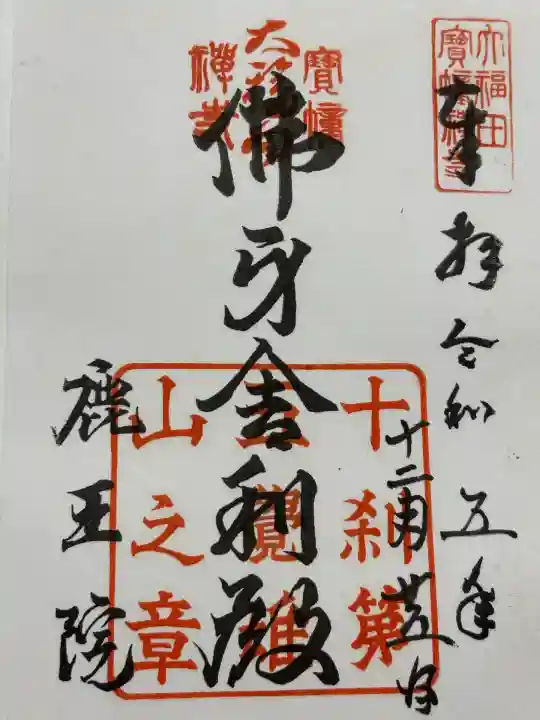 大福田
寶幢禅寺
奉拝 令和五年
十二月廿五日
寶幢
禅寺
佛牙舎利殿
十刹第
五覺雄
山之章
鹿王院